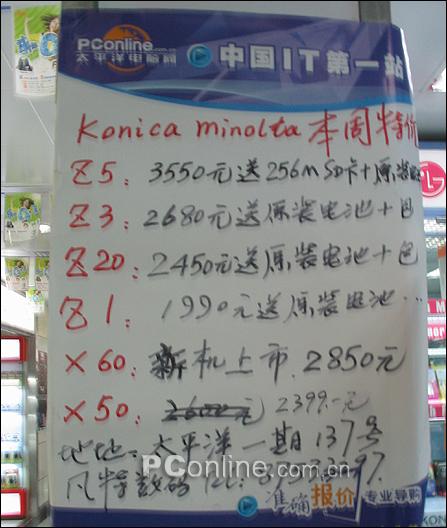 PConline.com.cn
太平洋电脑网
中国IT第一站
Konica minolta 本周特价
Z5: 3550元送256m SD卡+原装
Z3: 2680元送原装电池+包
Z20: 2450元送原装电池+包
Z1: 1990元送原装电池...
X60: 新机上市. 2850元
X50: 元 2399.-元
地址: 太平洋一期137号
凡特数码
PConline.com.cn
准确 报价 专业导购
LG